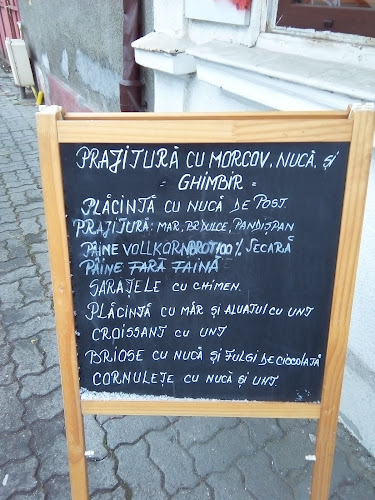 PRAJITURĂ CU MORCOV, NUCĂ, ȘI
= GHIMBIR =
PLĂCINTĂ CU NUCĂ DE POST
PRAJITURĂ: MAR, BR DULCE, PANDIȘPAN
PÂINE VOLLKORNBROT 100% SECARĂ
PÂINE FARĂ FAINĂ
SARAȚELE CU CHIMEN.
PLĂCINTĂ CU MĂR ȘI ALUATUL CU UNT
CROISSANT CU UNT
BRIOSE CU NUCĂ ȘI FULGI DE CIOCOLATĂ
CORNULEȚE CU NUCĂ ȘI UNT